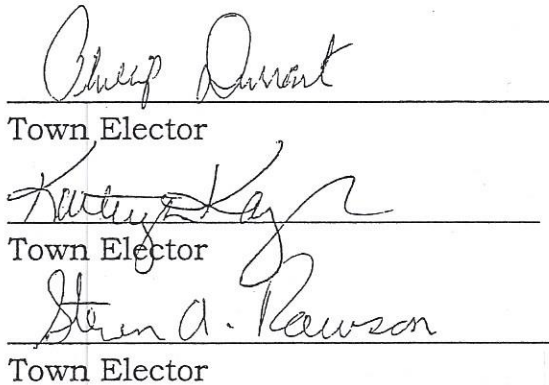 Philip Durrant
Town Elector
Town Elector
Steven A. Rawson
Town Elector